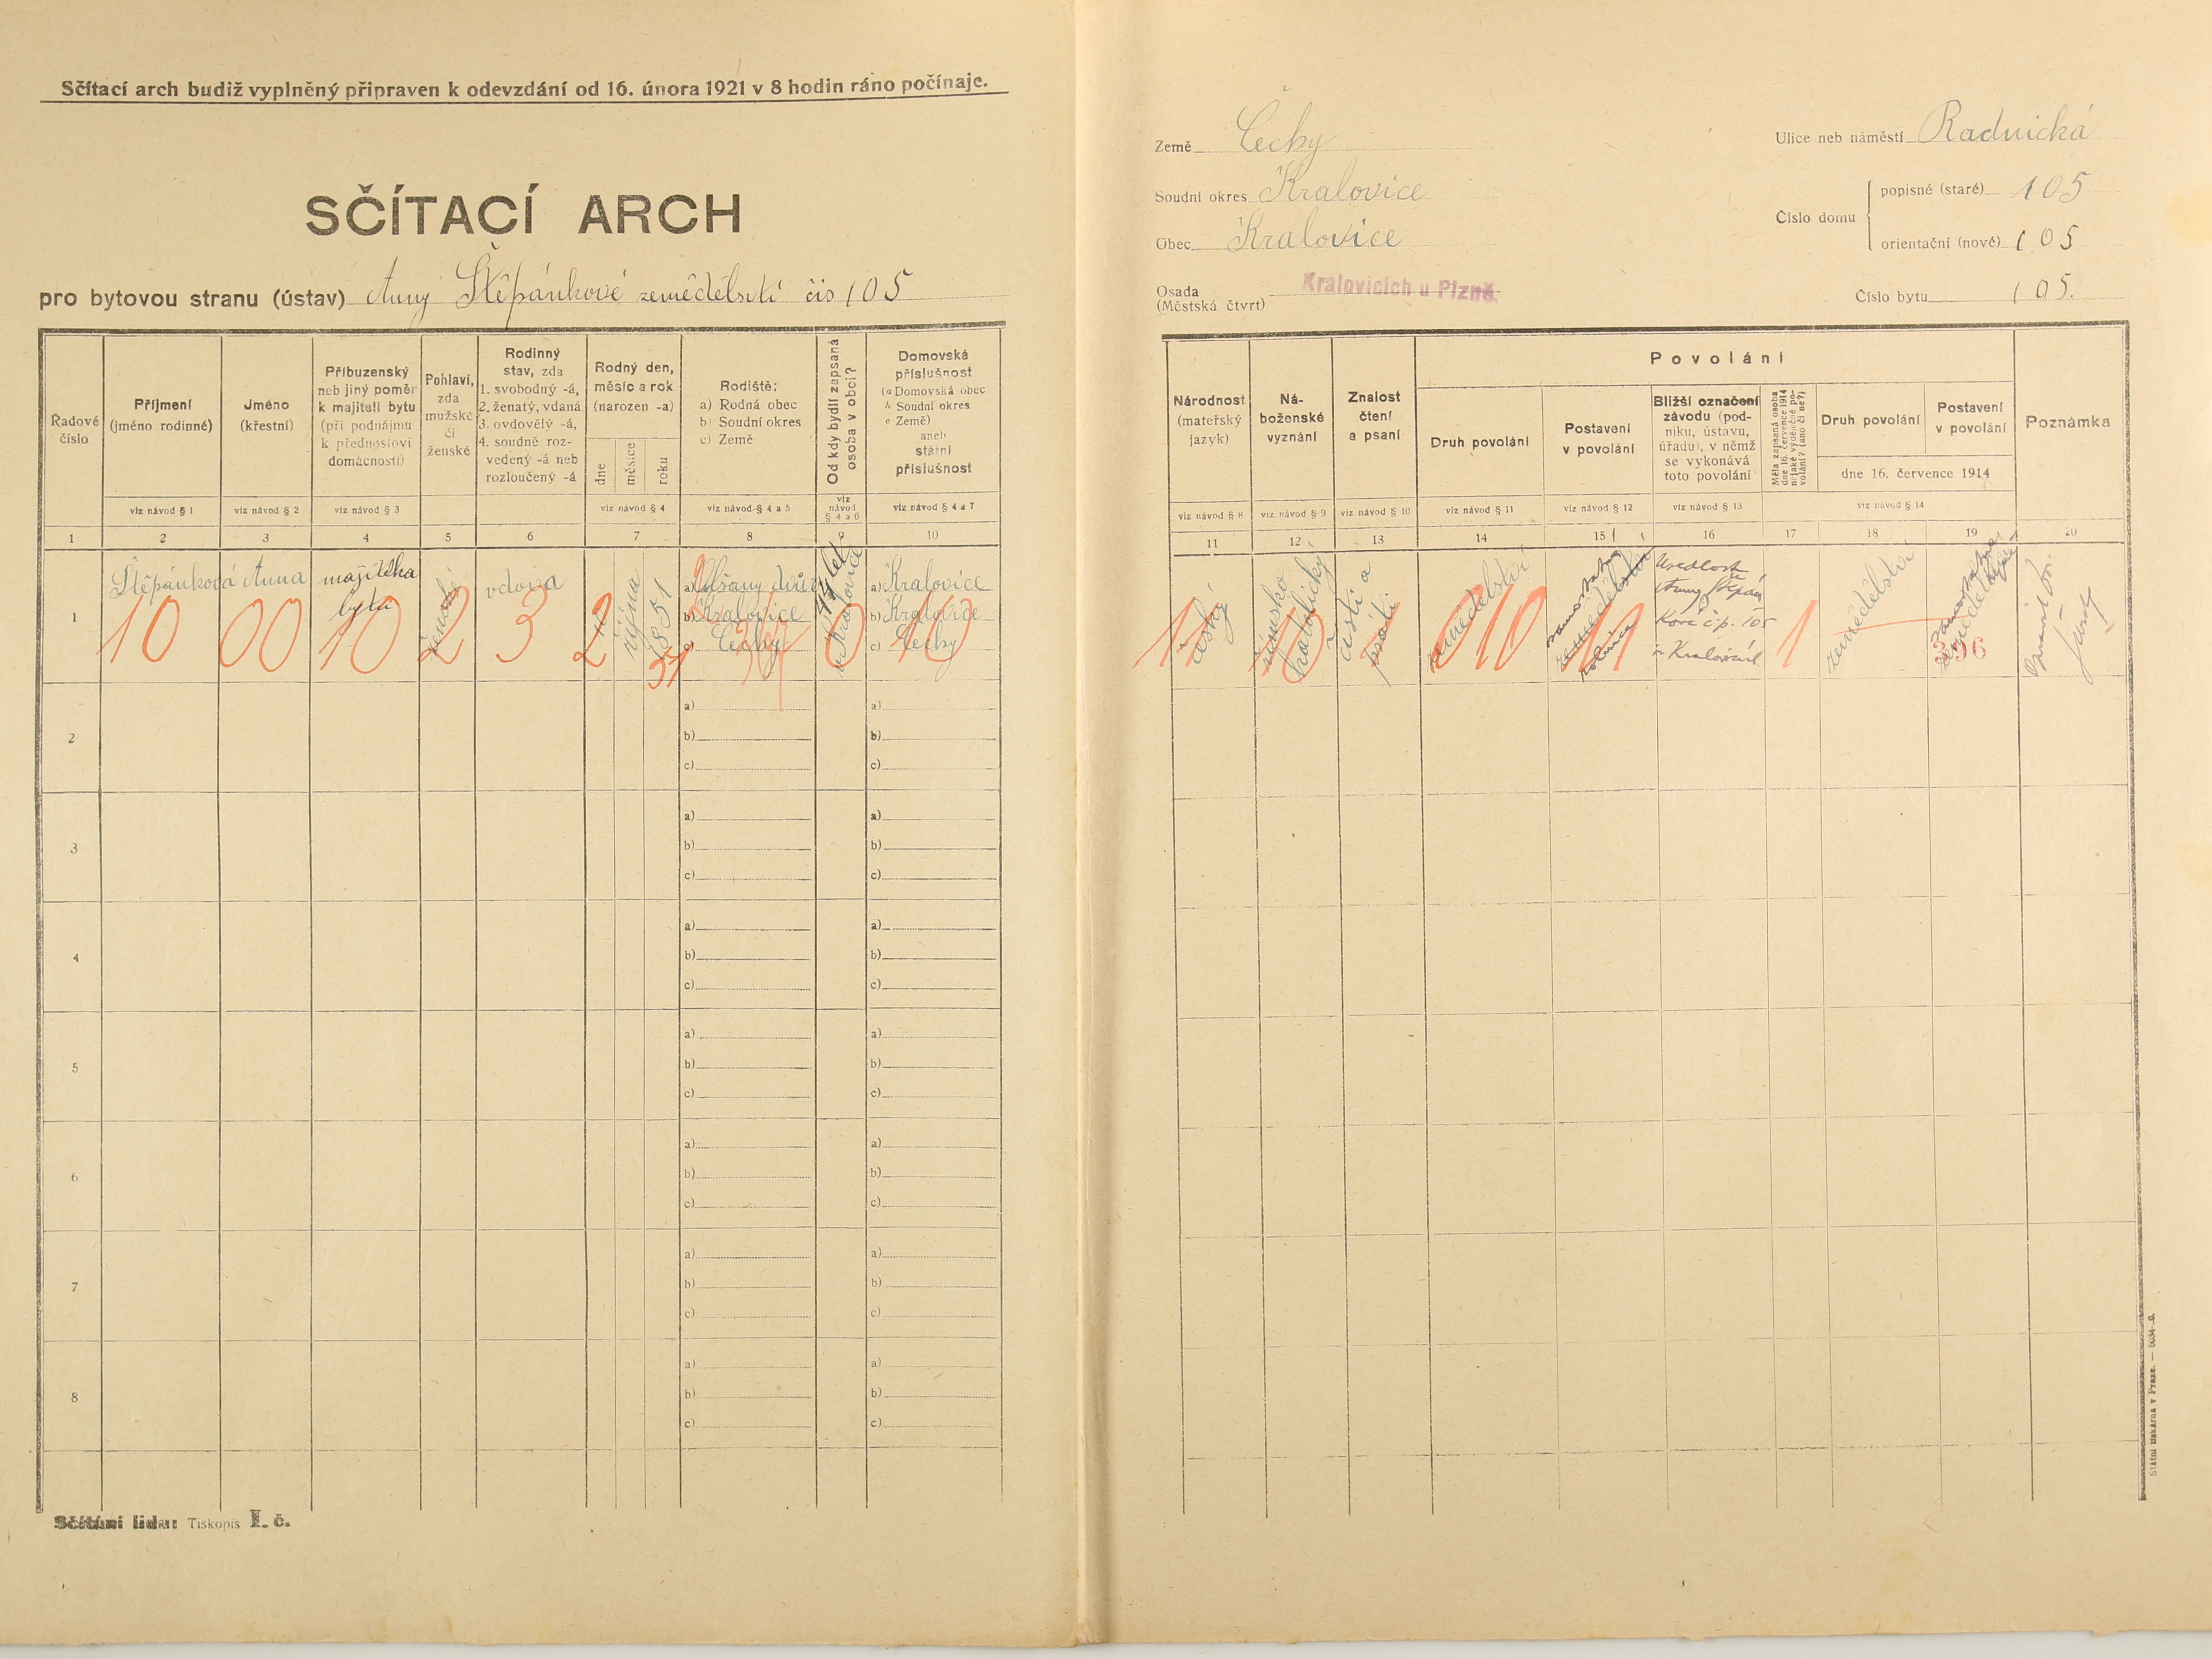 Sčítací arch budiž vyplněný připraven k odevzdání od 16. února 1921 v 8 hodin ráno počínaje.
SČÍTACÍ ARCH
pro bytovou stranu (ústav) Anny Štěpánkové zemědělství čís 105
Země Čechy
Soudní okres Kralovice
Obec Kralovice
Osada (Městská čtvrt) Kralovicích u Plzně
Ulice neb náměstí Radnická
Číslo domu
popisné (staré) 105
orientační (nové) 105
Číslo bytu 105.
Řadové číslo
Příjmení (jméno rodinné)
Jméno (křestní)
Příbuzenský neb jiný poměr k majiteli bytu (při podnájmu k přednostovi domácnosti)
Pohlaví, zda mužské či ženské
Rodinný stav, zda
1. svobodný -á,
2. ženatý, vdaná
3. ovdovělý -á,
4. soudně rozvedený -á neb rozloučený -á
Rodný den, měsíc a rok (narozen -a)
dne
měsíce
roku
Rodiště:
a) Rodná obec
b) Soudní okres
c) Země
Od kdy bydlí zapsaná osoba v obci?
Domovská příslušnost
(a Domovská obec
b Soudní okres
c Země)
aneb
státní příslušnost
viz návod § 1
viz návod § 2
viz návod § 3
viz návod § 4
viz návod § 4 a 5
viz návod § 4 a 6
viz návod § 4 a 7
1 2 3 4 5 6 7 8 9 10
Národnost (mateřský jazyk)
Náboženské vyznání
Znalost čtení a psaní
Povolání
Druh povolání
Postavení v povolání
Bližší označení závodu (podniku, ústavu, úřadu), v němž se vykonává toto povolání
Měla zapsaná osoba dne 16. července 1914 nějaké výdělečné povolání? (ano či ne?)
Druh povolání
Postavení v povolání
dne 16. července 1914
Poznámka
viz návod § 8
viz návod § 9
viz návod § 10
viz návod § 11
viz návod § 12
viz návod § 13
viz návod § 14
11 12 13 14 15 16 17 18 19 20
1
Štěpánková
Anna
majitelka bytu
ženské
vdova
října
1851
a) Olšany dvůr
b) Kralovice
c) Čechy
a) Kralovice
b) Kralovice
c) Čechy
10 00 10 2 3 2 51 0 10
český
římsko katolický
čísti a psáti
zemědělství
rolnice
Usedlost
Anny Štěpán
kové č.p. 105
v Kralovicích
zemědělství
396
010 1
2
a)
b)
c)
a)
b)
c)
3
a)
b)
c)
a)
b)
c)
4
a)
b)
c)
a)
b)
c)
5
a)
b)
c)
a)
b)
c)
6
a)
b)
c)
a)
b)
c)
7
a)
b)
c)
a)
b)
c)
8
a)
b)
c)
a)
b)
c)
Sčítání lidu: Tiskopis I. č.
Státní tiskárna v Praze.